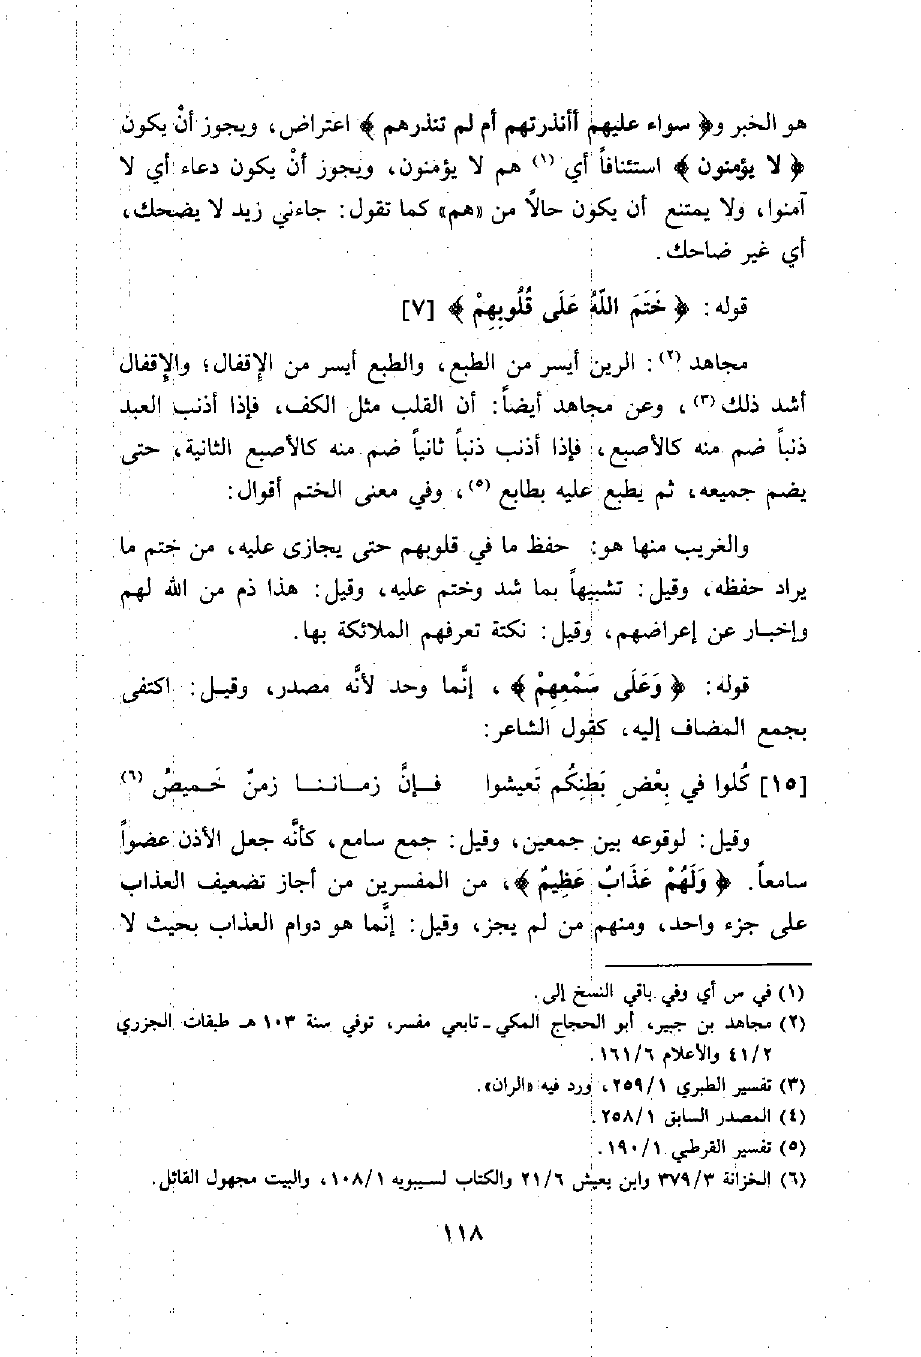 هو الخبر و﴿ سواء عليهم أأنذرتهم أم لم تنذرهم ﴾ اعتراض، ويجوز أنْ يكون
﴿ لا يؤمنون ﴾ استئنافاً أي (١) هم لا يؤمنون، ويجوز أنْ يكون دعاء أي لا
آمنوا، ولا يمتنع أن يكون حالاً من «هم» كما تقول: جاءني زيد لا يضحك،
أي غير ضاحك.
قوله: ﴿ خَتَمَ اللّهُ عَلَى قُلُوبِهِمْ ﴾ [٧]
مجاهد (٢): الرين أيسر من الطبع، والطبع أيسر من الإقفال؛ والإقفال
أشد ذلك (٣)، وعن مجاهد أيضاً: أن القلب مثل الكف، فإذا أذنب العبد
ذنباً ضم منه كالأصبع، فإذا أذنب ذنباً ثانياً ضم منه كالأصبع الثانية، حتى
يضم جميعه، ثم يطبع عليه بطابع (٥)، وفي معنى الختم أقوال:
والغريب منها هو: حفظ ما في قلوبهم حتى يجازى عليه، من ختم ما
يراد حفظه، وقيل: تشبيهاً بما شد وختم عليه، وقيل: هذا ذم من الله لهم
وإخبار عن إعراضهم، وقيل: نكتة تعرفهم الملائكة بها.
قوله: ﴿ وَعَلَى سَمْعِهِمْ ﴾ ، إنَّما وحد لأنَّه مصدر، وقيل: اكتفى
بجمع المضاف إليه، كقول الشاعر:
[١٥] كُلوا في بِعْضِ بَطْنِكُم تَعيشوا فإنَّ زماننا زمنٌ خَميصُ (٦)
وقيل: لوقوعه بين جمعين، وقيل: جمع سامع، كأنَّه جعل الأذن عضواً
سامعاً. ﴿ وَلَهُمْ عَذَابٌ عَظِيمٌ ﴾، من المفسرين من أجاز تضعيف العذاب
على جزء واحد، ومنهم من لم يجز، وقيل: إنَّما هو دوام العذاب بحيث لا
(١) في س أي وفي باقي النسخ إلى.
(٢) مجاهد بن جبير، أبو الحجاج المكي - تابعي مفسر، توفي سنة ١٠٣ هـ طبقات الجزري
٤١/٢ والأعلام ١٦١/٦.
(٣) تفسير الطبري ٢٥٩/١، ورد فيه «الران».
(٤) المصدر السابق ٢٥٨/١.
(٥) تفسير القرطي ١٩٠/١.
(٦) الخزانة ٣٧٩/٣ وابن يعيش ٢١/٦ والكتاب لسيبويه ١٠٨/١، والبيت مجهول القائل.
١١٨